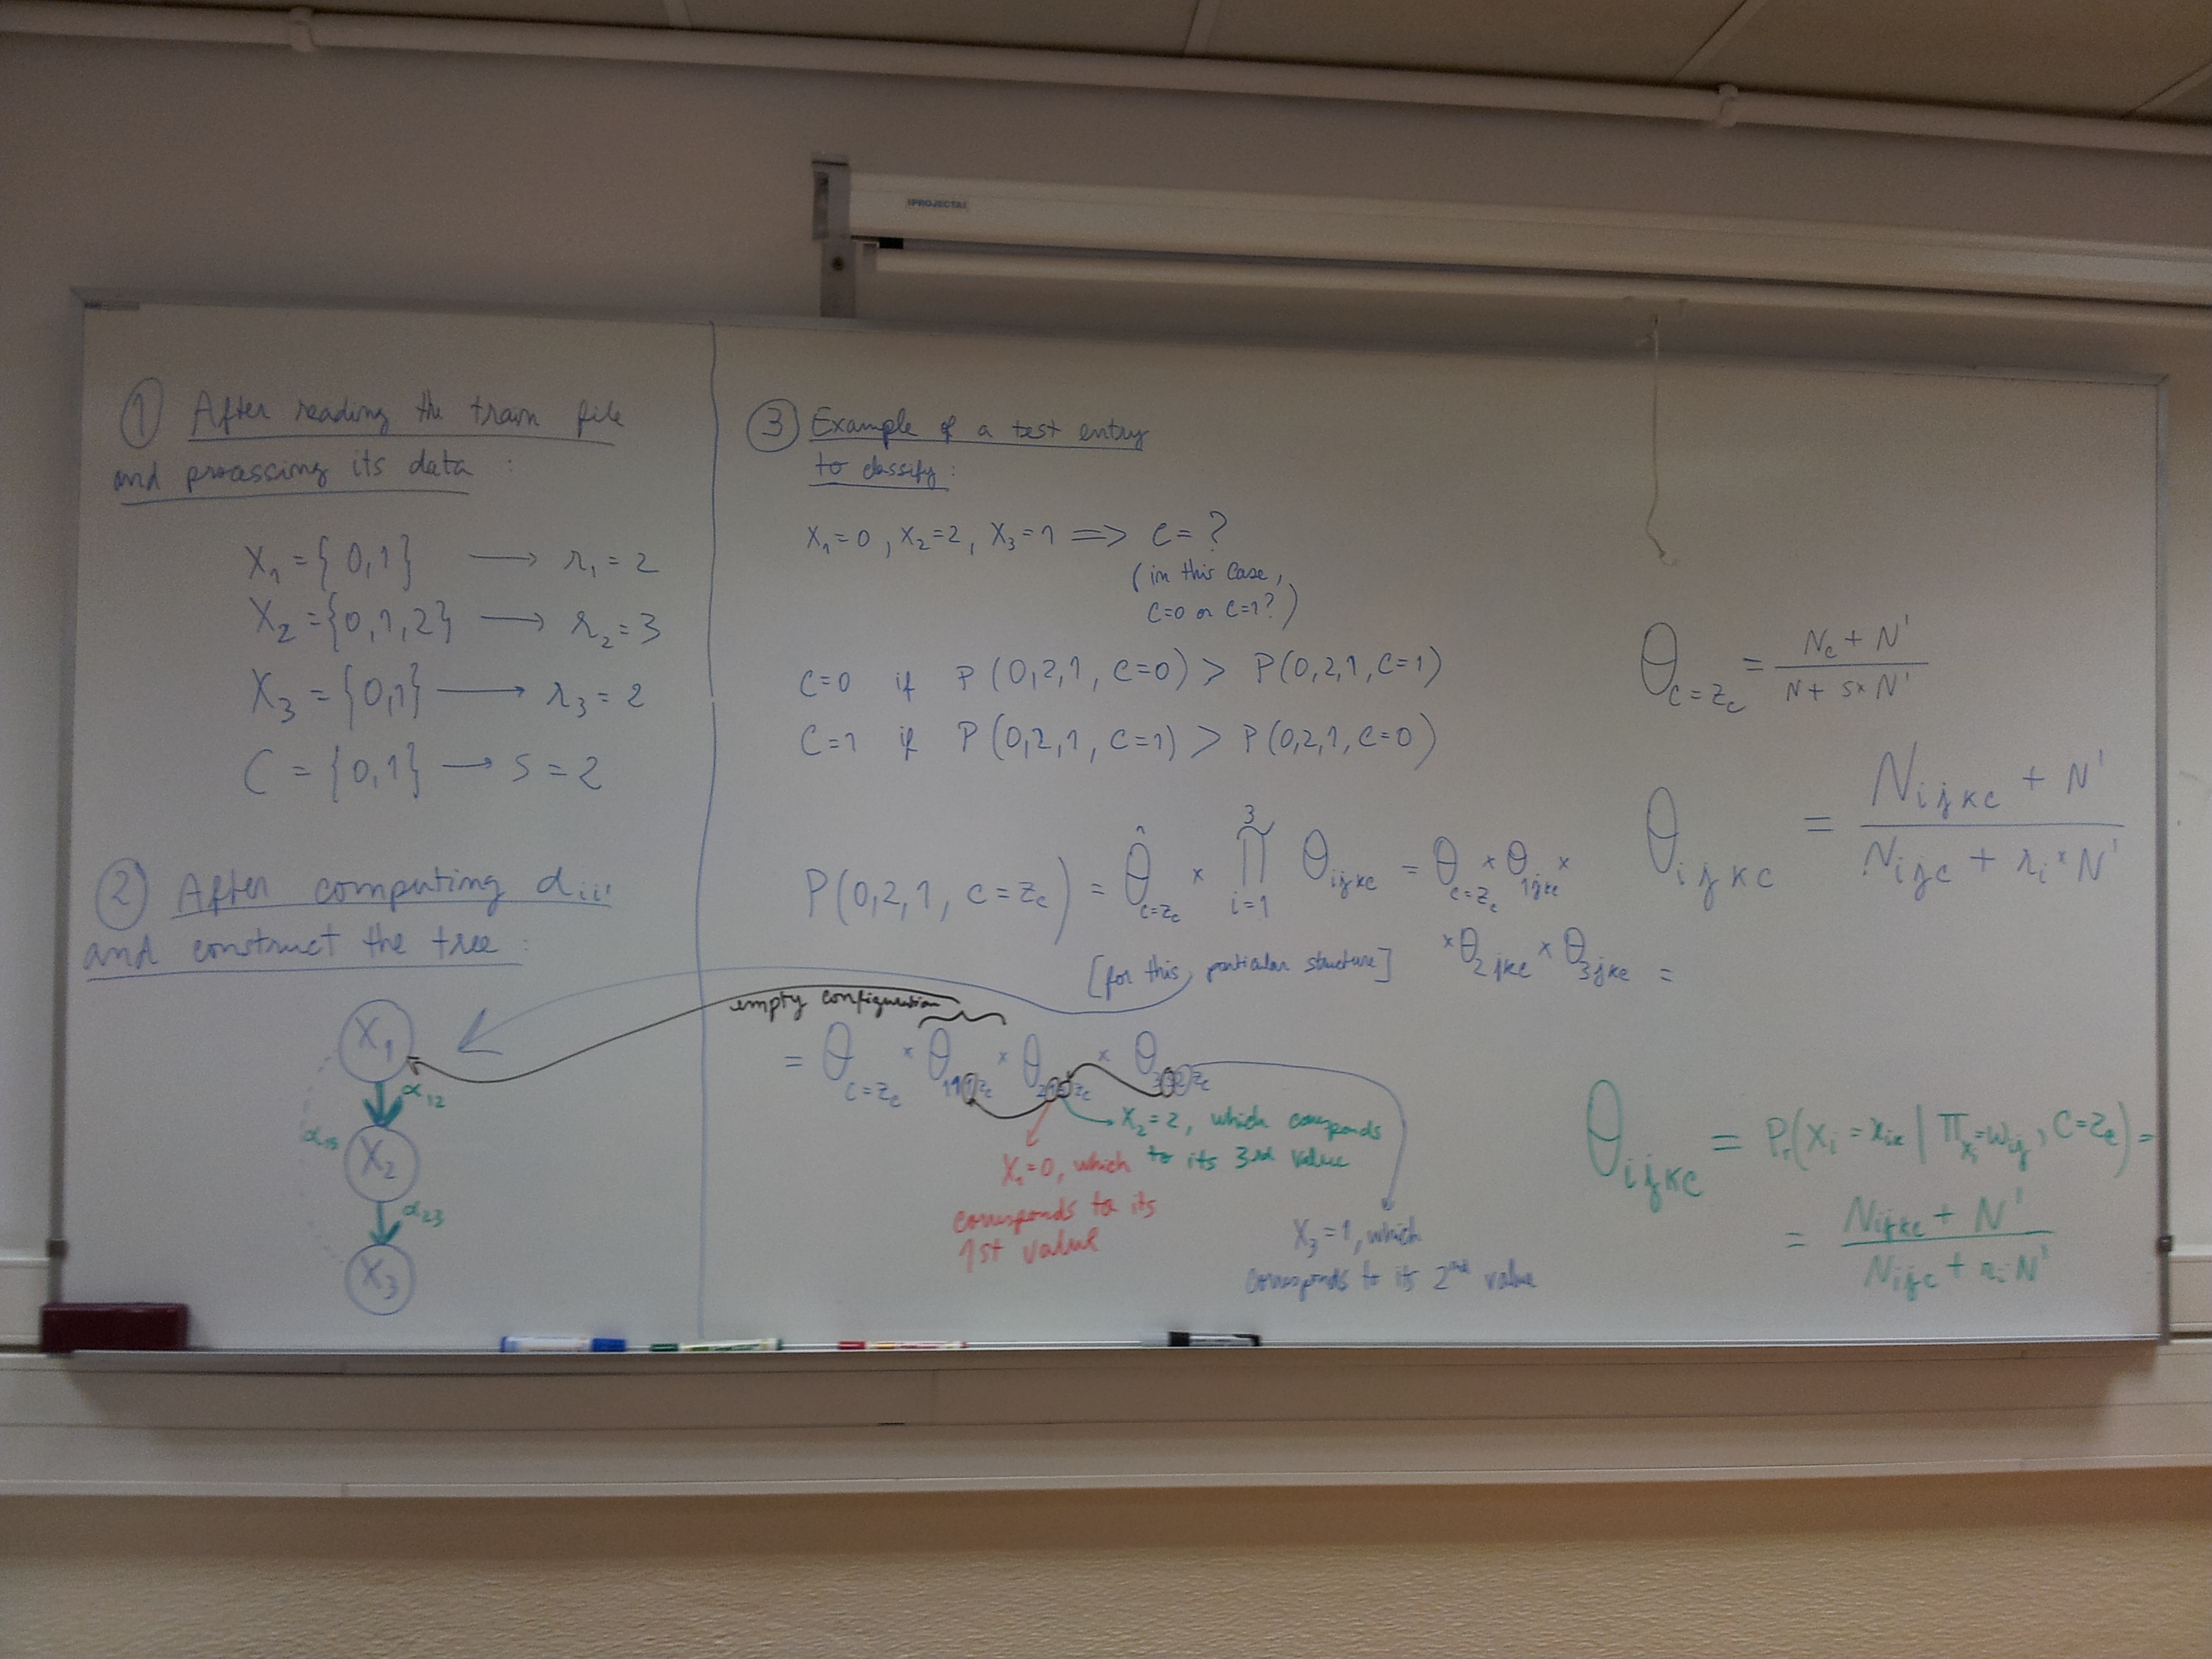 PROJECTA
① After reading the train file
and processing its data :
X₁ = {0,1} → r₁ = 2
X₂ = {0,1,2} → r₂ = 3
X₃ = {0,1} → r₃ = 2
C = {0,1} → s = 2
② After computing αᵢᵢ'
and construct the tree :
X₁
α₁₂
α₁₃
X₂
α₂₃
X₃
③ Example of a test entry
to classify :
X₁=0, X₂=2, X₃=1 => C= ?
(in this case,
C=0 or C=1?)
C=0 if P(0,2,1, C=0) > P(0,2,1, C=1)
C=1 if P(0,2,1, C=1) > P(0,2,1, C=0)
P(0,2,1, C=z_c) = θ̂_{C=z_c} × ∏_{i=1}^{3} θ_{ijkc} = θ_{C=z_c} × θ_{1jkc} ×
× θ_{2jkc} × θ_{3jkc} =
[for this particular structure]
empty configuration
= θ_{C=z_c} × θ × θ × θ
X₂=2, which corresponds
to its 3rd value
X₁=0, which
corresponds to its
1st value
X₃=1, which
corresponds to its 2nd value
θ_{C=z_c} = (N_c + N') / (N + s × N')
θ_{ijkc} = (N_{ijkc} + N') / (N_{ijc} + r_i × N')
θ_{ijkc} = Pr(X_i = x_{ik} | Π_{X_i} = w_{ij}, C=z_c) =
= (N_{ijkc} + N') / (N_{ijc} + r_i N')